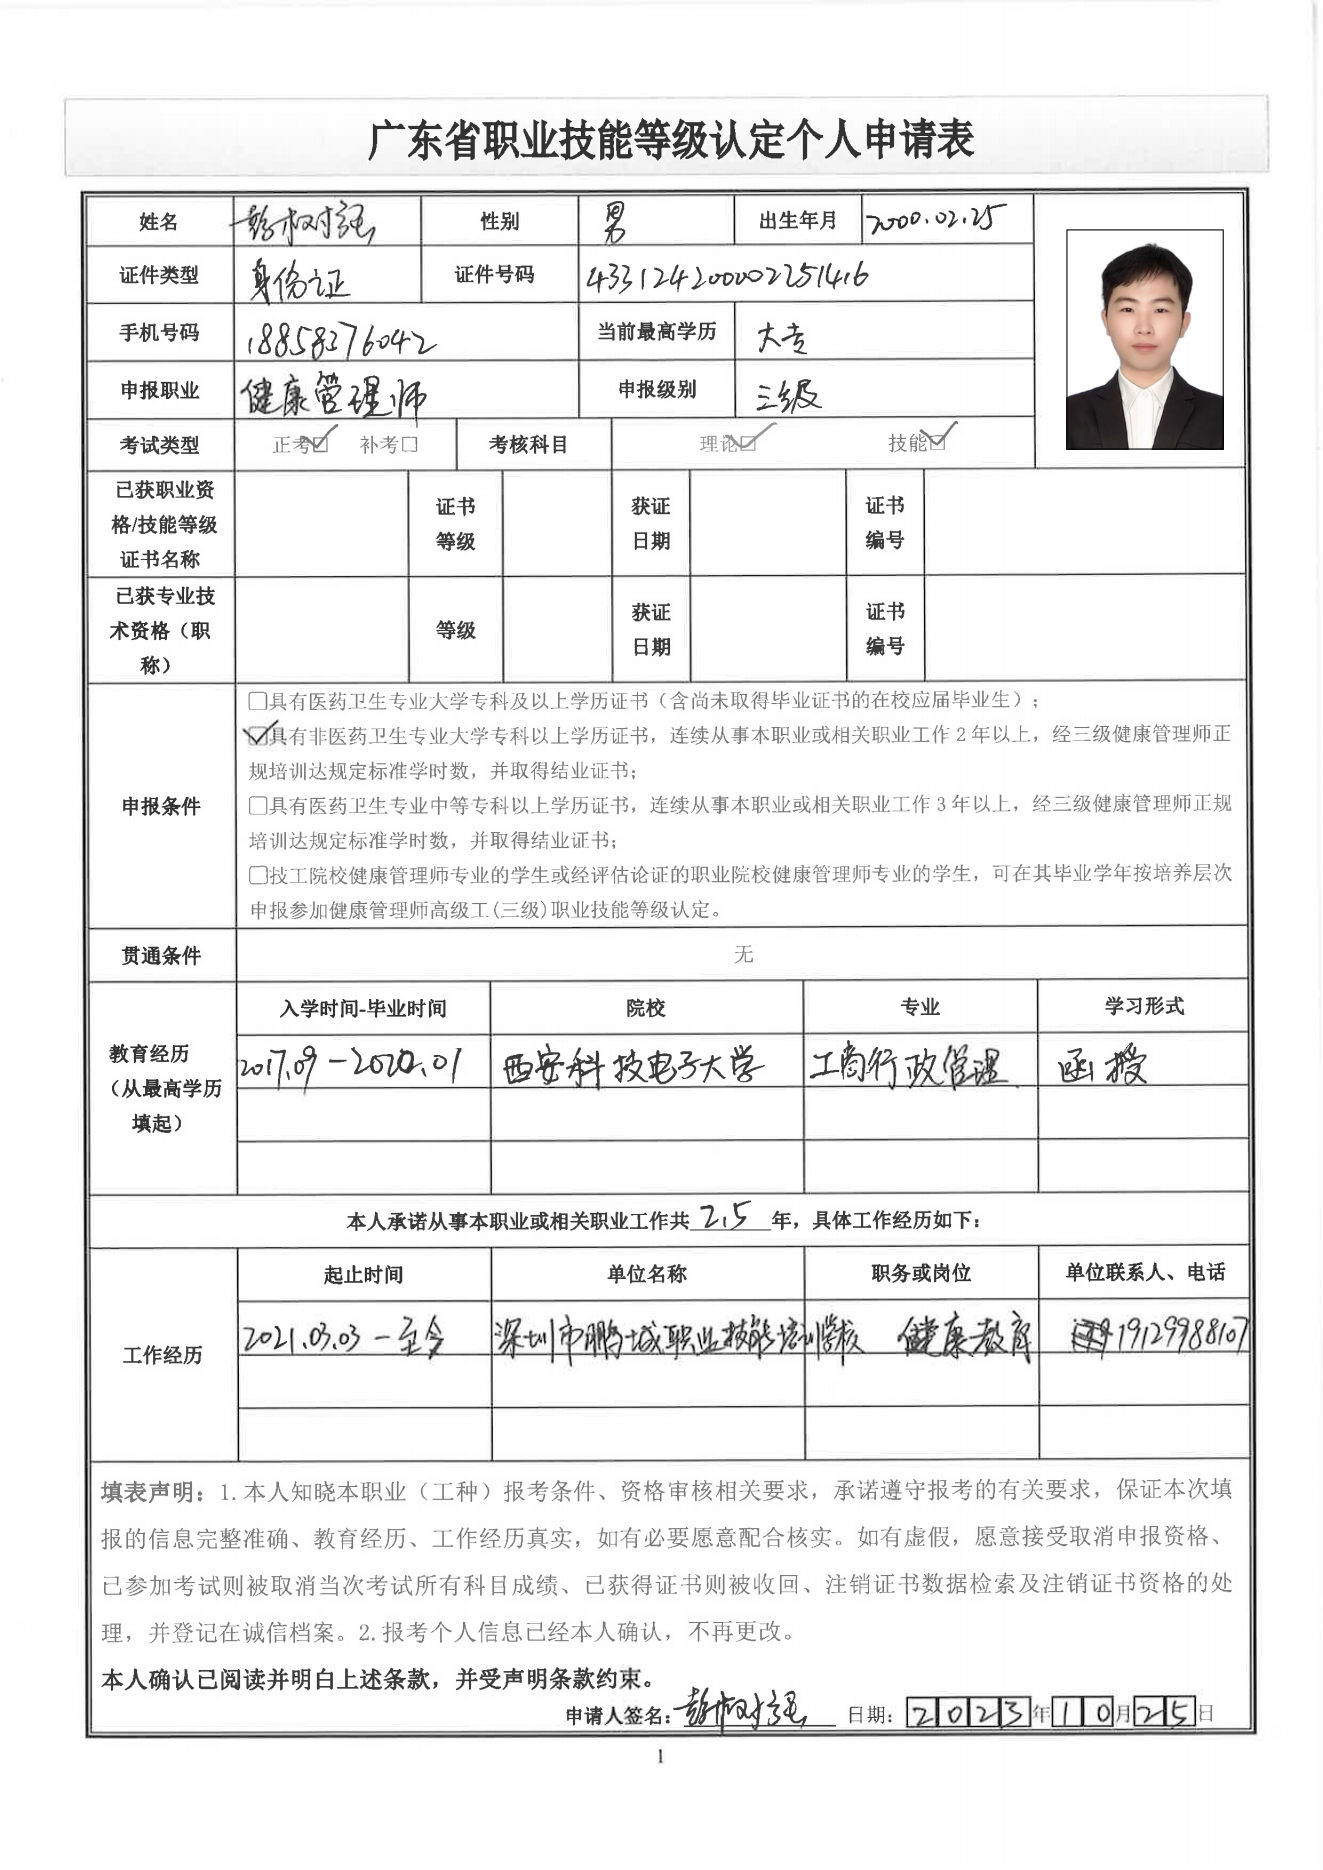 广东省职业技能等级认定个人申请表
姓名 彭树强 性别 男 出生年月 2000.02.25
证件类型 身份证 证件号码 433124200002251416
手机号码 18858376042 当前最高学历 大专
申报职业 健康管理师 申报级别 三级
考试类型 正考☑ 补考□ 考核科目 理论☑ 技能☑
已获职业资格/技能等级证书名称 证书等级 获证日期 证书编号
已获专业技术资格（职称） 等级 获证日期 证书编号
申报条件
□具有医药卫生专业大学专科及以上学历证书（含尚未取得毕业证书的在校应届毕业生）；
☑具有非医药卫生专业大学专科以上学历证书，连续从事本职业或相关职业工作 2 年以上，经三级健康管理师正
规培训达规定标准学时数，并取得结业证书；
□具有医药卫生专业中等专科以上学历证书，连续从事本职业或相关职业工作 3 年以上，经三级健康管理师正规
培训达规定标准学时数，并取得结业证书；
□技工院校健康管理师专业的学生或经评估论证的职业院校健康管理师专业的学生，可在其毕业学年按培养层次
申报参加健康管理师高级工(三级)职业技能等级认定。
贯通条件 无
教育经历（从最高学历填起）
入学时间-毕业时间 院校 专业 学习形式
2017.09－2020.01 西安科技电子大学 工商行政管理 函授
本人承诺从事本职业或相关职业工作共 2.5 年，具体工作经历如下：
工作经历
起止时间 单位名称 职务或岗位 单位联系人、电话
2021.03.03－至今 深圳市鹏城职业技能培训学校 健康教育 19129988107
填表声明：1.本人知晓本职业（工种）报考条件、资格审核相关要求，承诺遵守报考的有关要求，保证本次填
报的信息完整准确、教育经历、工作经历真实，如有必要愿意配合核实。如有虚假，愿意接受取消申报资格、
已参加考试则被取消当次考试所有科目成绩、已获得证书则被收回、注销证书数据检索及注销证书资格的处
理，并登记在诚信档案。2.报考个人信息已经本人确认，不再更改。
本人确认已阅读并明白上述条款，并受声明条款约束。
申请人签名：彭树强 日期：2023年10月25日
1